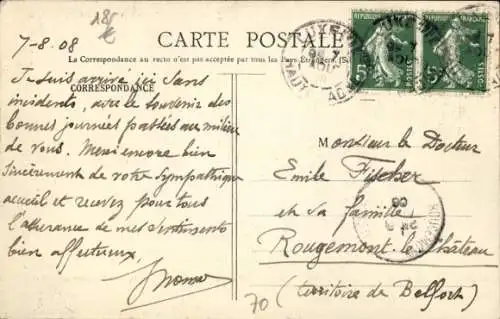 185
€
7-8.08
CARTE POSTALE
La Correspondance au recto n'est pas acceptée par tous les Pays Étrangers.
CORRESPONDANCE
Je suis arrivé ici sans
incidents, avec le souvenir des
bonnes journées passées au milieu
de vous. Merci encore bien
sincèrement de votre sympathique
accueil et recevez pour tous
l'assurance de mes sentiments
bien affectueux
Monsieur le Docteur
Emile Fischer
et sa famille
Rougemont-le-Château
(territoire de Belfort)
70
REPUBLIQUE FRANÇAISE
5c
POSTES
5c
POSTES